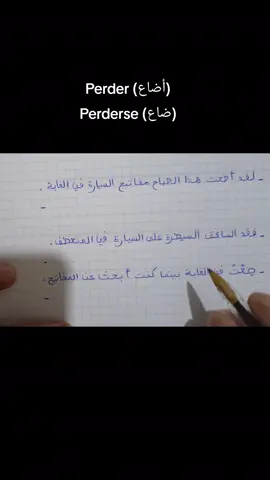 Perder (أضاع)
Perderse (ضاع)
- لقد أضعت هذا الصباح مفاتيح السيارة في الغابة .
-
- فقد السائق السيطرة على السيارة في المنعطف .
-
- ضِعْتُ في الغابة بينما كنت أبحث عن المفاتيح .
-